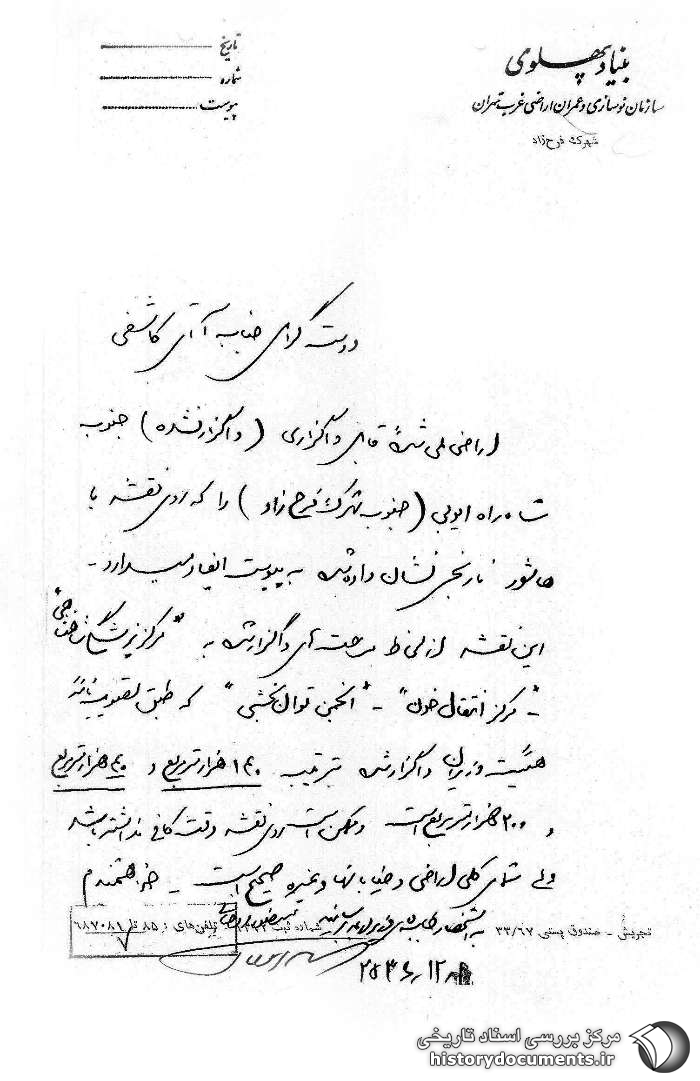 بنیاد پهلوی
سازمان نوسازی و عمران اراضی غرب تهران
شهرک فرح‌زاد
تاریخ
شماره
پیوست
دوست گرامی جناب آقای کاشفی
اراضی ملی شدهٔ قابل واگزاری (واگزار نشده) جنوب
شاهراه ایوبی (جنوب شهرک فرح زاد) را که روی نقشه با
هاشور نارنجی نشان داده شده به پیوست ایفاد میدارد -
این نقشه از لحاظ مساحت های واگزار شده به "مرکز پزشکی
- "مرکز انتقال خون" - "انجمن توان بخشی" که طبق تصویبنامه
هیئت وزیران واگزار شده بترتیب ۱۴۰ هزار متر مربع و ۴۰ هزار متر مربع
و ۲۰۰ هزار متر مربع است و ممکن است روی نقشه دقت کافی نداشته باشد
ولی شمای کلی اراضی و خیابانها و غیره صحیح است - خواهشمندم
به استحضار
تجریش - صندوق پستی ۳۳/۶۷ شماره ثبت تلفن‌های : ۸۵ تا ۶۸۷۰۸۱
۲۵۳۶/۱۲/
مرکز بررسی اسناد تاریخی
historydocuments.ir